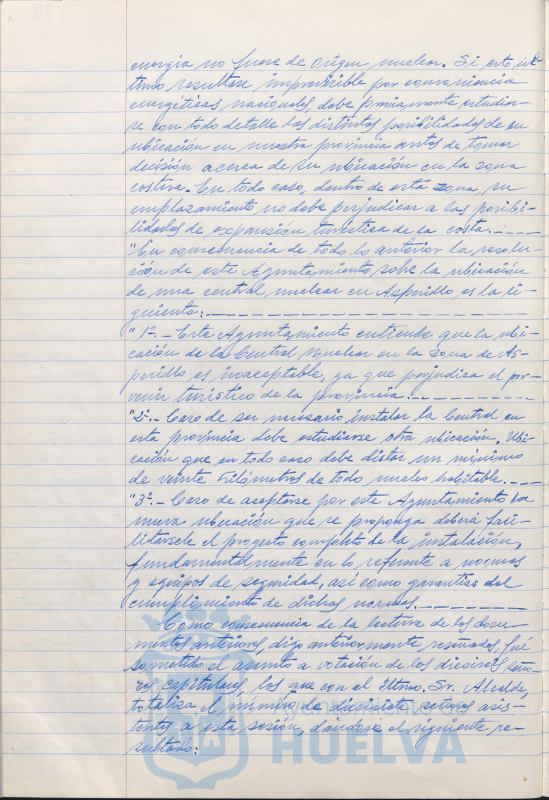 energía no fuese de origen nuclear. Si esto úl-
timo resultase imprescindible por conveniencia
energéticas nacionales, debe previamente estudiar-
se con todo detalle las distintas posibilidades de su
ubicación en nuestra provincia antes de tomar
decisión acerca de su ubicación en la zona
costera. En todo caso, dentro de esta zona su
emplazamiento no debe perjudicar a las posibi-
lidades de expansión turística de la costa.-----
"En consecuencia de todo lo anterior la resolu-
ción de este Ayuntamiento sobre la ubicación
de una central nuclear en Asperillo es la si-
guiente:-----
"1º.- Este Ayuntamiento entiende que la ubi-
cación de la Central Nuclear en la zona de As-
perillo es inaceptable, ya que perjudica el por-
venir turístico de la provincia.-----
"2º.- Caso de ser necesario instalar la Central en
esta provincia debe estudiarse otra ubicación. Ubi-
cación que en todo caso debe distar un mínimo
de veinte kilómetros de todo nucleo habitable.----
"3º.- Caso de aceptarse por este Ayuntamiento la
nueva ubicación que se proponga deberá faci-
litársele el proyecto completo de la instalación,
fundamentalmente en lo referente a normas
y equipos de seguridad, así como garantías del
cumplimiento de dichas normas.-----
Como consecuencia de la lectura de los docu-
mentos anteriores, digo anteriormente reseñados, fué
sometido el asunto a votación de los dieciseis seño-
res capitulares, los que con el Iltmo. Sr. Alcalde,
totaliza el número de diecisiete señores asis-
tentes a esta sesión, dándose el siguiente re-
sultado:
HUELVA